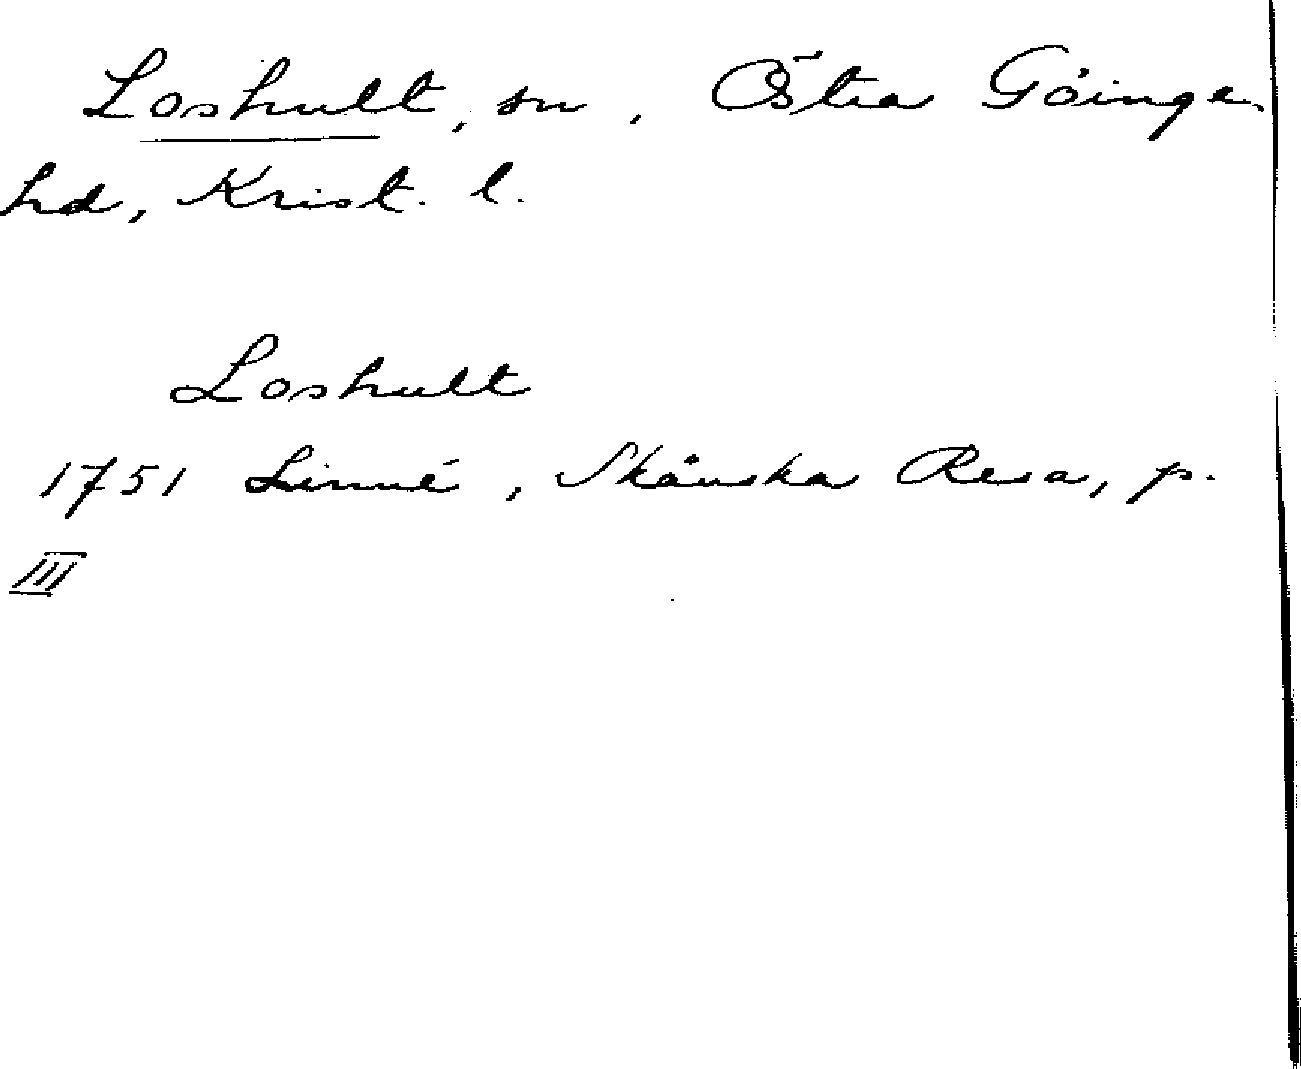 Loshult, sn, Östra Göinge
hd, Krist. l.
Loshult
1751 Linné, Skånska Resa, p.
III